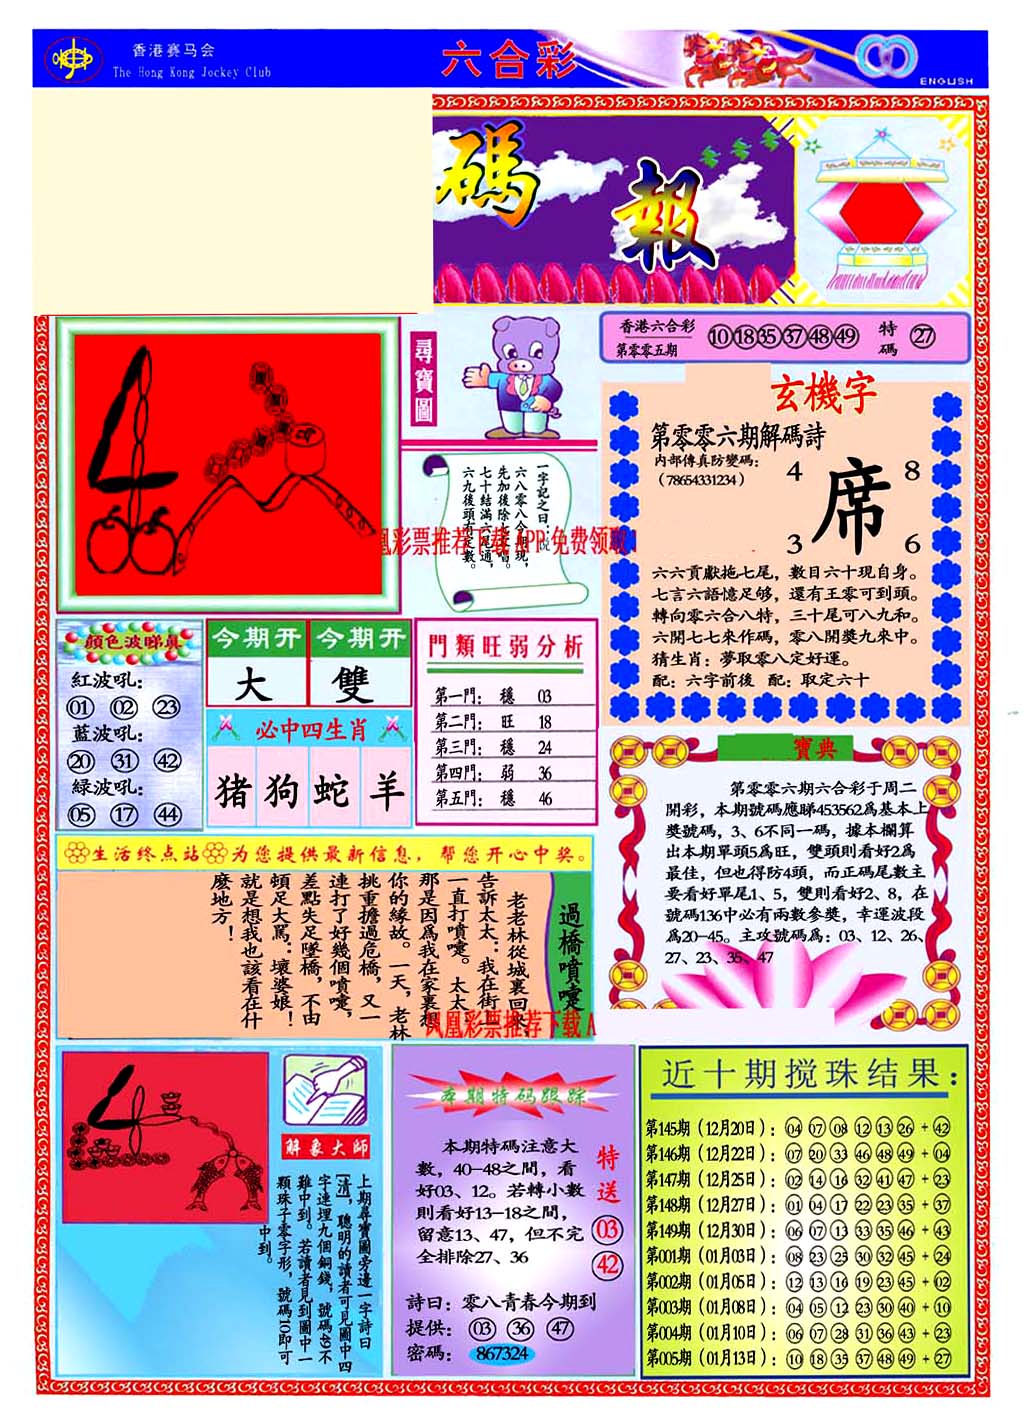 香港赛马会
The Hong Kong Jockey Club
六合彩
ENGLISH
碼報
尋寶圖
香港六合彩
第零零五期
10 18 35 37 48 49
特碼 27
玄機字
第零零六期解碼詩
内部傳真防變碼：
（78654331234）
4 8
席
3 6
六六貢獻拖七尾，數目六十現自身。
七言六語憶足够，還有王零可到頭。
轉向零六合八特，三十尾可八九和。
六開七七來作碼，零八開獎九來中。
猜生肖：夢取零八定好運。
配：六字前後 配：取定六十
一字記之曰：
六八零八今期現，
先加後除
七十結滿六尾通，
六九後頭有定數。
凰彩票推荐下载 APP 免费领取
顏色波睇真
紅波吼：
01 02 23
藍波吼：
20 31 42
緑波吼：
05 17 44
今期开 今期开
大 雙
必中四生肖
猪 狗 蛇 羊
門類旺弱分析
第一門： 穩 03
第二門： 旺 18
第三門： 穩 24
第四門： 弱 36
第五門： 穩 46
寶典
第零零六期六合彩于周二
開彩，本期號碼應睇453562爲基本上
獎號碼，3、6不同一碼，據本欄算
出本期單頭5爲旺，雙頭則看好2爲
最佳，但也得防4頭，而正碼尾數主
要看好單尾1、5，雙則看好2、8，在
號碼136中必有兩數參獎，幸運波段
爲20-45。主攻號碼爲：03、12、26、
27、23、35、47
生活终点站 为您提供最新信息，帮您开心中奖。
過橋噴嚏
老老林從城裏回來，
告訴太太：我在街上
一直打噴嚏。太太
那是因爲我在家裏想
你的緣故。一天，老林
挑重擔過危橋，又一
連打了好幾個噴嚏，
差點失足墜橋，不由
頓足大罵：壞婆娘！
就是想我也該看在什
麼地方！
凤凰彩票推荐下载 A
解象大師
上期尋寶圖旁邊一字詩曰
「清」，聰明的讀者可見圖中四
字連埋九個銅錢，號碼49不
難中到。若讀者見到圖中一
顆珠子零字形，號碼10即可
中到。
本期特码跟踪
本期特碼注意大
數，40-48之間，看
好03、12。若轉小數
則看好13-18之間，
留意13、47，但不完
全排除27、36
特送
03
42
詩曰：零八青春今期到
提供： 03 36 47
密碼： 867324
近十期搅珠结果：
第145期（12月20日）：04 07 08 12 13 26 + 42
第146期（12月22日）：07 20 33 46 48 49 + 04
第147期（12月25日）：02 14 16 32 41 47 + 23
第148期（12月27日）：01 04 17 22 23 35 + 37
第149期（12月30日）：06 07 13 33 35 46 + 43
第001期（01月03日）：08 23 25 30 32 45 + 24
第002期（01月05日）：12 13 16 19 23 45 + 02
第003期（01月08日）：04 05 12 23 30 40 + 10
第004期（01月10日）：06 07 28 31 36 43 + 23
第005期（01月13日）：10 18 35 37 48 49 + 27